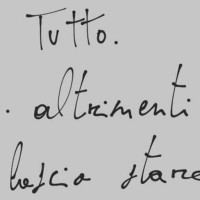 Tutto.
. altrimenti
lascio stare